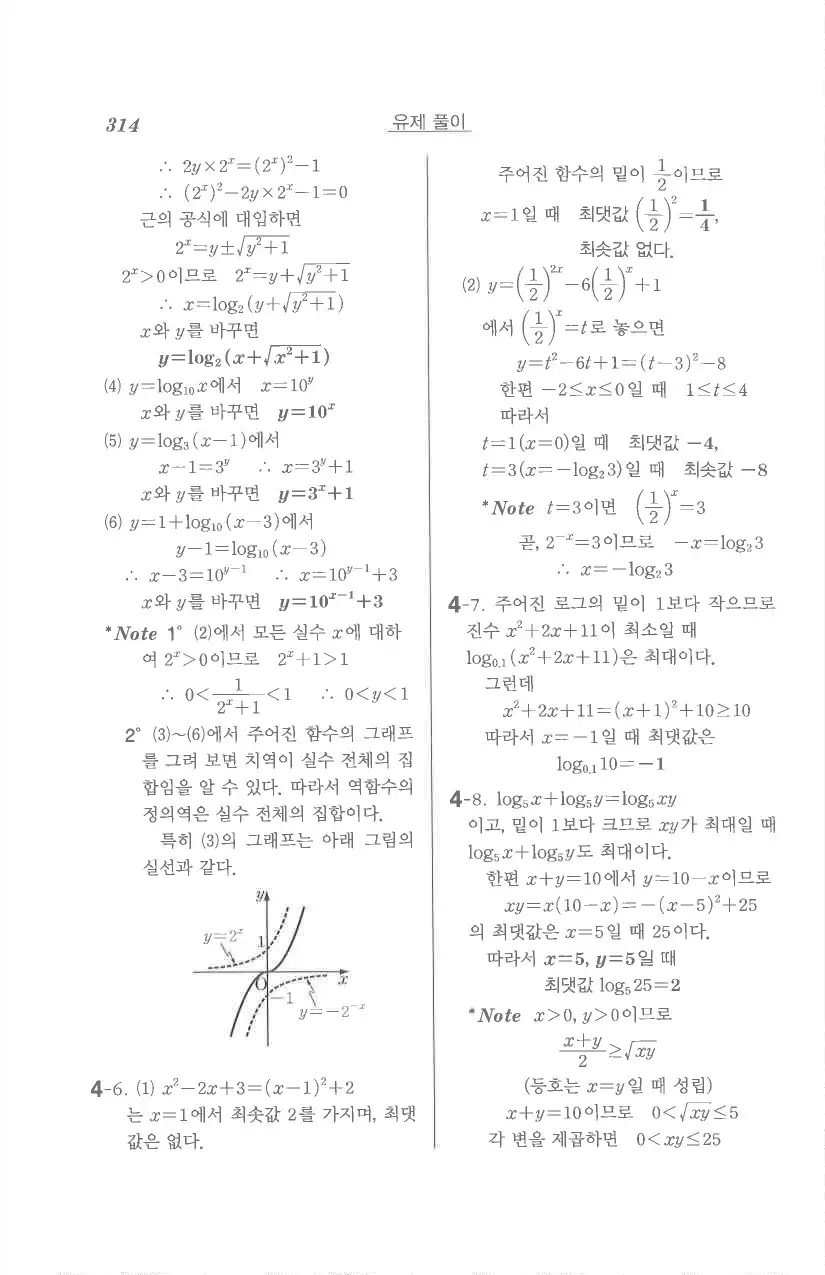 314
유제 풀이
∴ 2y×2ˣ=(2ˣ)²−1
∴ (2ˣ)²−2y×2ˣ−1=0
근의 공식에 대입하면
2ˣ=y±√(y²+1)
2ˣ>0이므로 2ˣ=y+√(y²+1)
∴ x=log₂(y+√(y²+1))
x와 y를 바꾸면
y=log₂(x+√(x²+1))
(4) y=log₁₀x에서 x=10ʸ
x와 y를 바꾸면 y=10ˣ
(5) y=log₃(x−1)에서
x−1=3ʸ ∴ x=3ʸ+1
x와 y를 바꾸면 y=3ˣ+1
(6) y=1+log₁₀(x−3)에서
y−1=log₁₀(x−3)
∴ x−3=10ʸ⁻¹ ∴ x=10ʸ⁻¹+3
x와 y를 바꾸면 y=10ˣ⁻¹+3
*Note 1° (2)에서 모든 실수 x에 대하
여 2ˣ>0이므로 2ˣ+1>1
∴ 0<1/(2ˣ+1)<1 ∴ 0<y<1
2° (3)~(6)에서 주어진 함수의 그래프
를 그려 보면 치역이 실수 전체의 집
합임을 알 수 있다. 따라서 역함수의
정의역은 실수 전체의 집합이다.
특히 (3)의 그래프는 아래 그림의
실선과 같다.
y
y=2ˣ
1
O
x
−1
y=−2⁻ˣ
4-6. (1) x²−2x+3=(x−1)²+2
는 x=1에서 최솟값 2를 가지며, 최댓
값은 없다.
주어진 함수의 밑이 1/2이므로
x=1일 때 최댓값 (1/2)²=1/4,
최솟값 없다.
(2) y=(1/2)²ˣ−6(1/2)ˣ+1
에서 (1/2)ˣ=t로 놓으면
y=t²−6t+1=(t−3)²−8
한편 −2≤x≤0일 때 1≤t≤4
따라서
t=1(x=0)일 때 최댓값 −4,
t=3(x=−log₂3)일 때 최솟값 −8
*Note t=3이면 (1/2)ˣ=3
곧, 2⁻ˣ=3이므로 −x=log₂3
∴ x=−log₂3
4-7. 주어진 로그의 밑이 1보다 작으므로
진수 x²+2x+11이 최소일 때
log₀.₁(x²+2x+11)은 최대이다.
그런데
x²+2x+11=(x+1)²+10≥10
따라서 x=−1일 때 최댓값은
log₀.₁10=−1
4-8. log₅x+log₅y=log₅xy
이고, 밑이 1보다 크므로 xy가 최대일 때
log₅x+log₅y도 최대이다.
한편 x+y=10에서 y=10−x이므로
xy=x(10−x)=−(x−5)²+25
의 최댓값은 x=5일 때 25이다.
따라서 x=5, y=5일 때
최댓값 log₅25=2
*Note x>0, y>0이므로
(x+y)/2≥√(xy)
(등호는 x=y일 때 성립)
x+y=10이므로 0<√(xy)≤5
각 변을 제곱하면 0<xy≤25